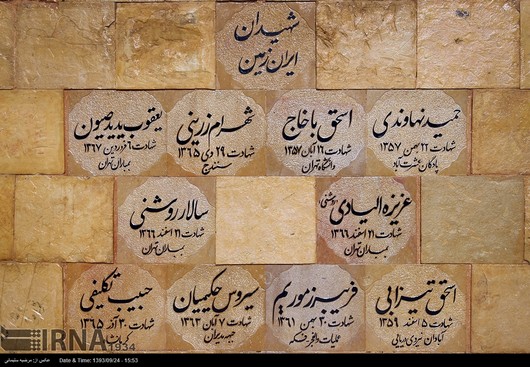 شهیدان
ایران زمین
حمید نهاوندی
شهادت ۲۲ بهمن ۱۳۵۷
پادگان عشرت آباد
اسحق باخاج
شهادت ۱۶ آبان ۱۳۵۷
دانشگاه تهران
شهرام زرینی
شهادت ۲۹ دی ۱۳۶۵
سنندج
یعقوب یدیدصیون
شهادت ۶ فروردین ۱۳۶۷
بمباران تهران
عزیزه الیادی روشنی
شهادت ۲۱ اسفند ۱۳۶۶
بمباران تهران
سالار روشنی
شهادت ۲۱ اسفند ۱۳۶۶
بمباران تهران
اسحق تیزابی
شهادت ۵ اسفند ۱۳۵۹
آبادان نیروی دریایی
فریبرز موریم
شهادت ۲۰ بهمن ۱۳۶۱
عملیات والفجر فکه
سیروس حکیمیان
شهادت ۷ آبان ۱۳۶۳
جبهه مهران
حبیب تکلیفی
شهادت ۳۰ آذر ۱۳۶۵
IRNA
1934
عکاس از: مرضیه سلیمانی
Date & Time: 1393/09/24 - 15:53